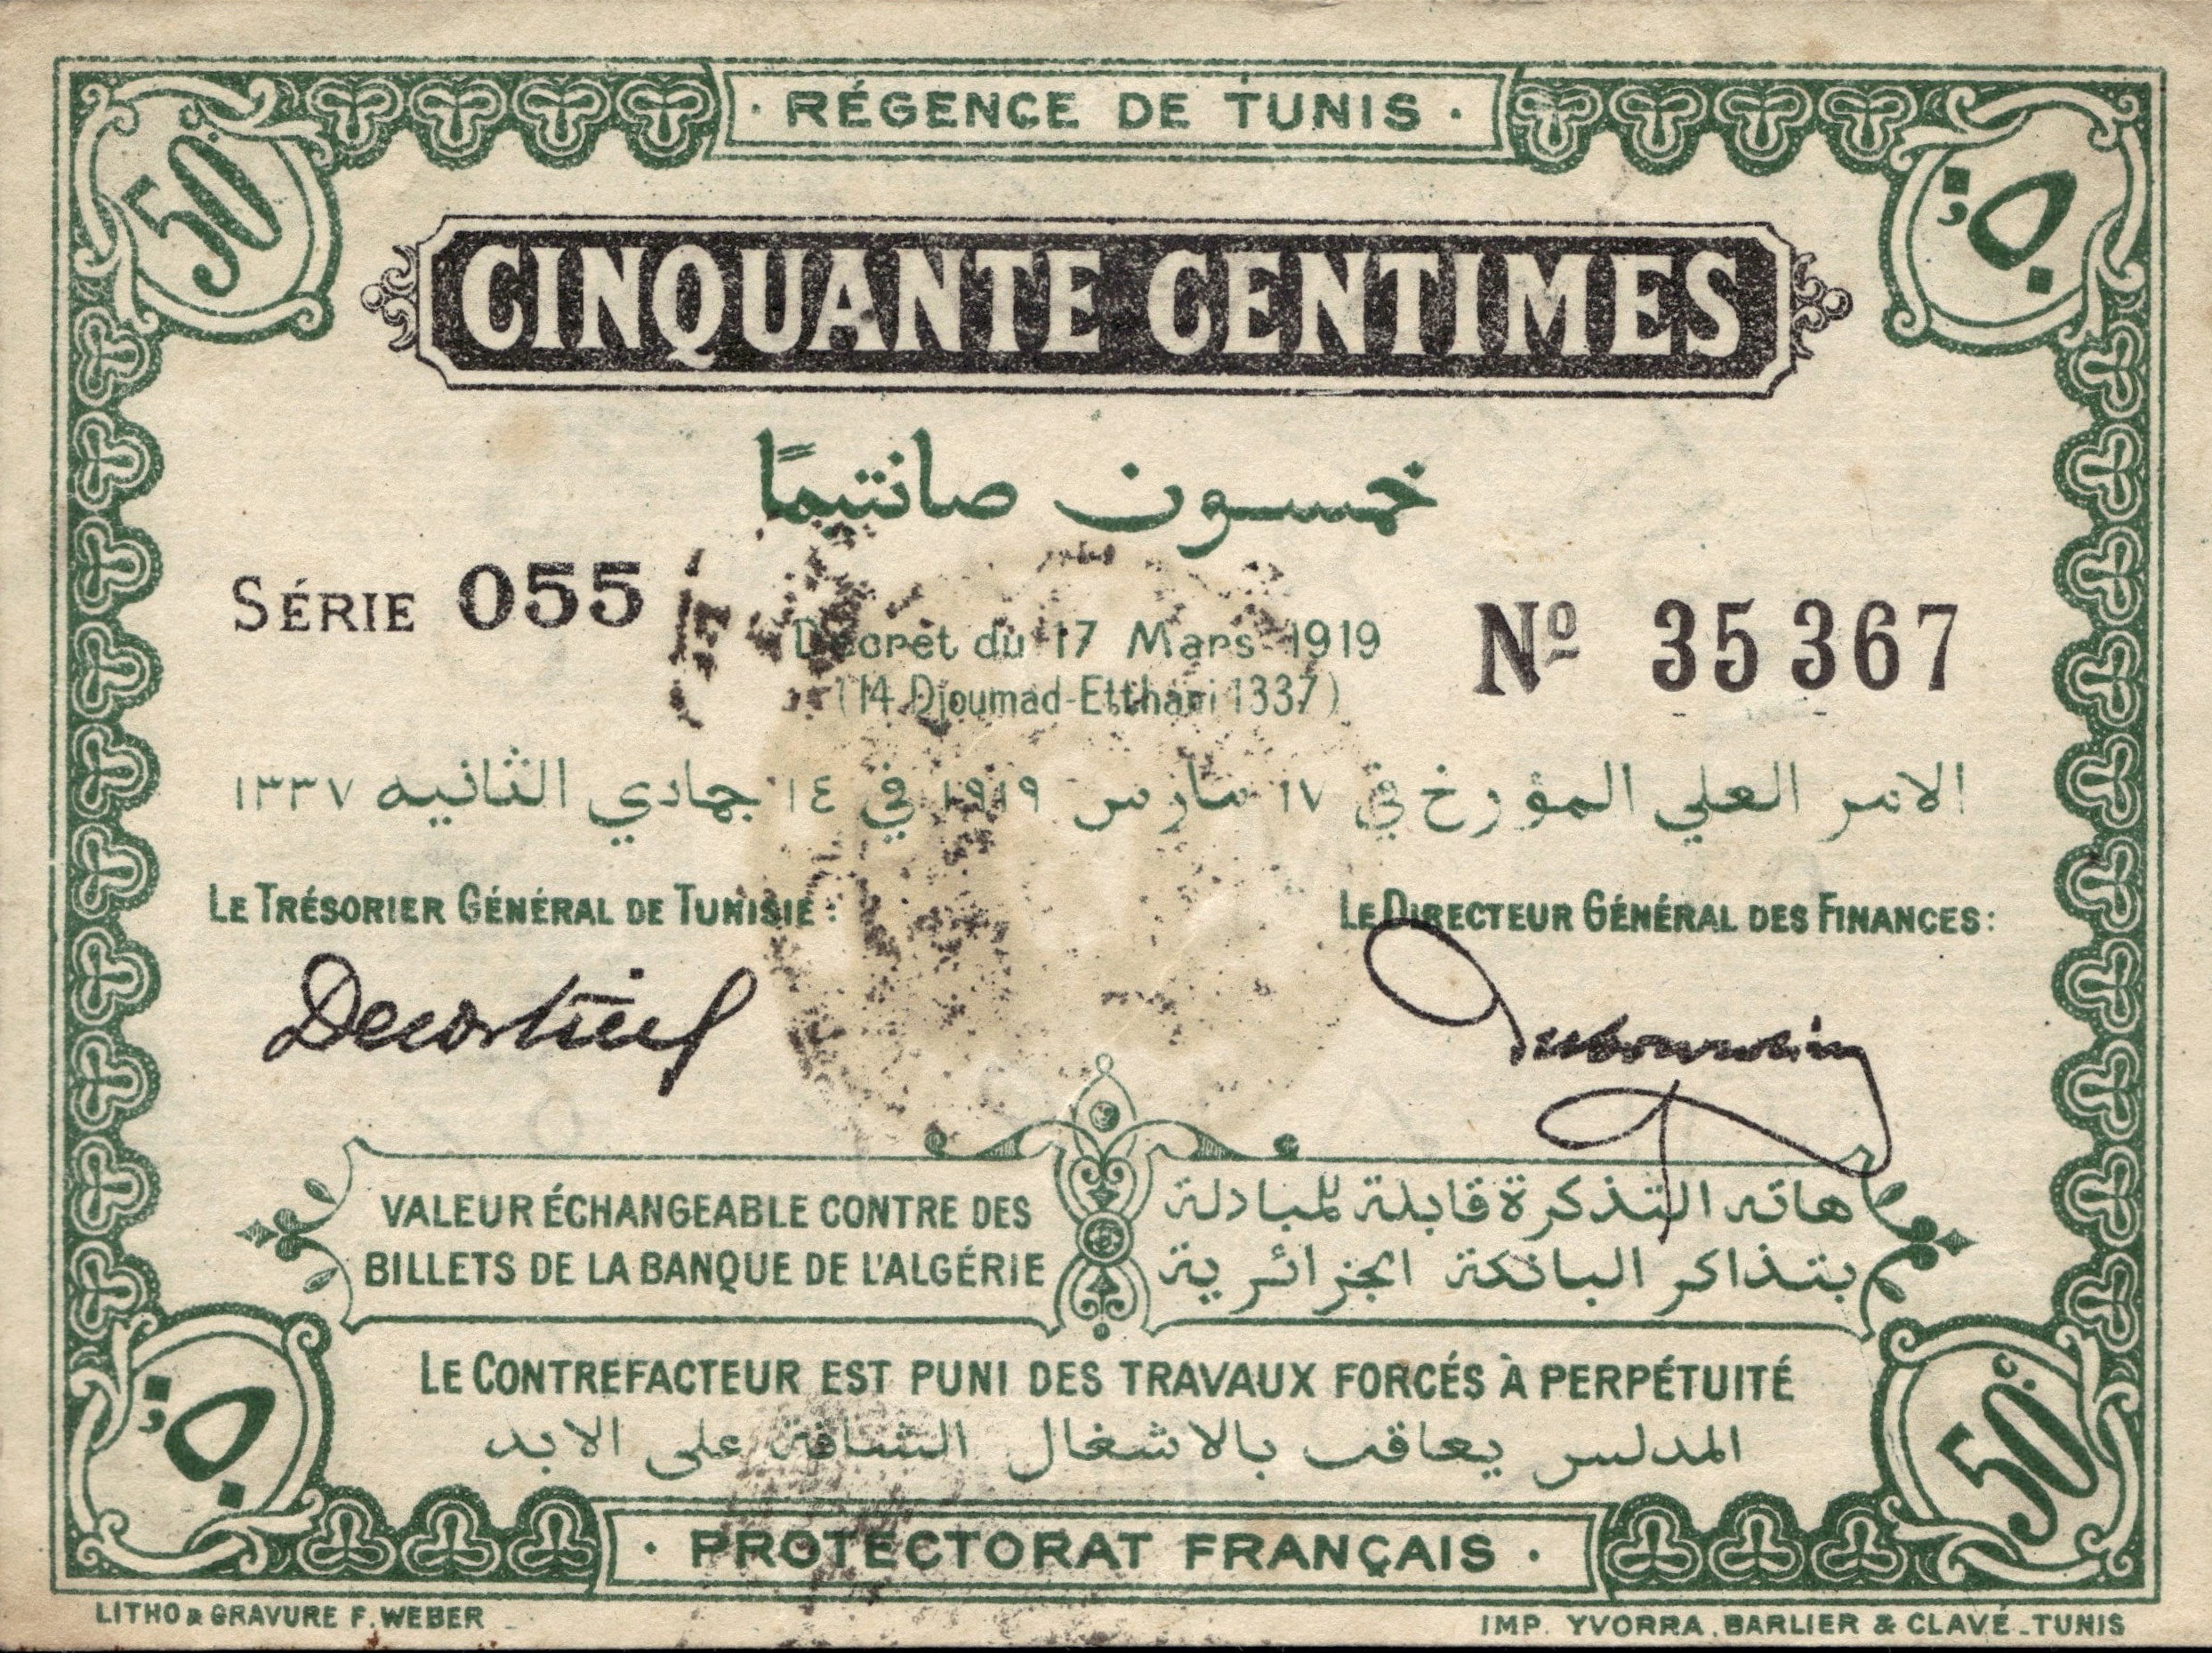 · RÉGENCE DE TUNIS ·
50
٥٠
CINQUANTE CENTIMES
خمسون صانتيمًا
SÉRIE 055
Nº 35367
Décret du 17 Mars 1919
(14 Djoumad-Etthani 1337)
الامر العلي المؤرخ في ١٧ مارس ١٩١٩ في ١٤ جمادي الثانيه ١٣٣٧
LE TRÉSORIER GÉNÉRAL DE TUNISIE :
LE DIRECTEUR GÉNÉRAL DES FINANCES :
VALEUR ÉCHANGEABLE CONTRE DES
BILLETS DE LA BANQUE DE L'ALGÉRIE
هاته التذكرة قابلة للمبادلة
بتذاكر البانكة الجزائرية
LE CONTREFACTEUR EST PUNI DES TRAVAUX FORCÉS À PERPÉTUITÉ
المدلس يعاقب بالاشغال الشاقة على الابد
٥٠
50
· PROTECTORAT FRANÇAIS ·
LITHO & GRAVURE F. WEBER
IMP. YVORRA, BARLIER & CLAVÉ _ TUNIS